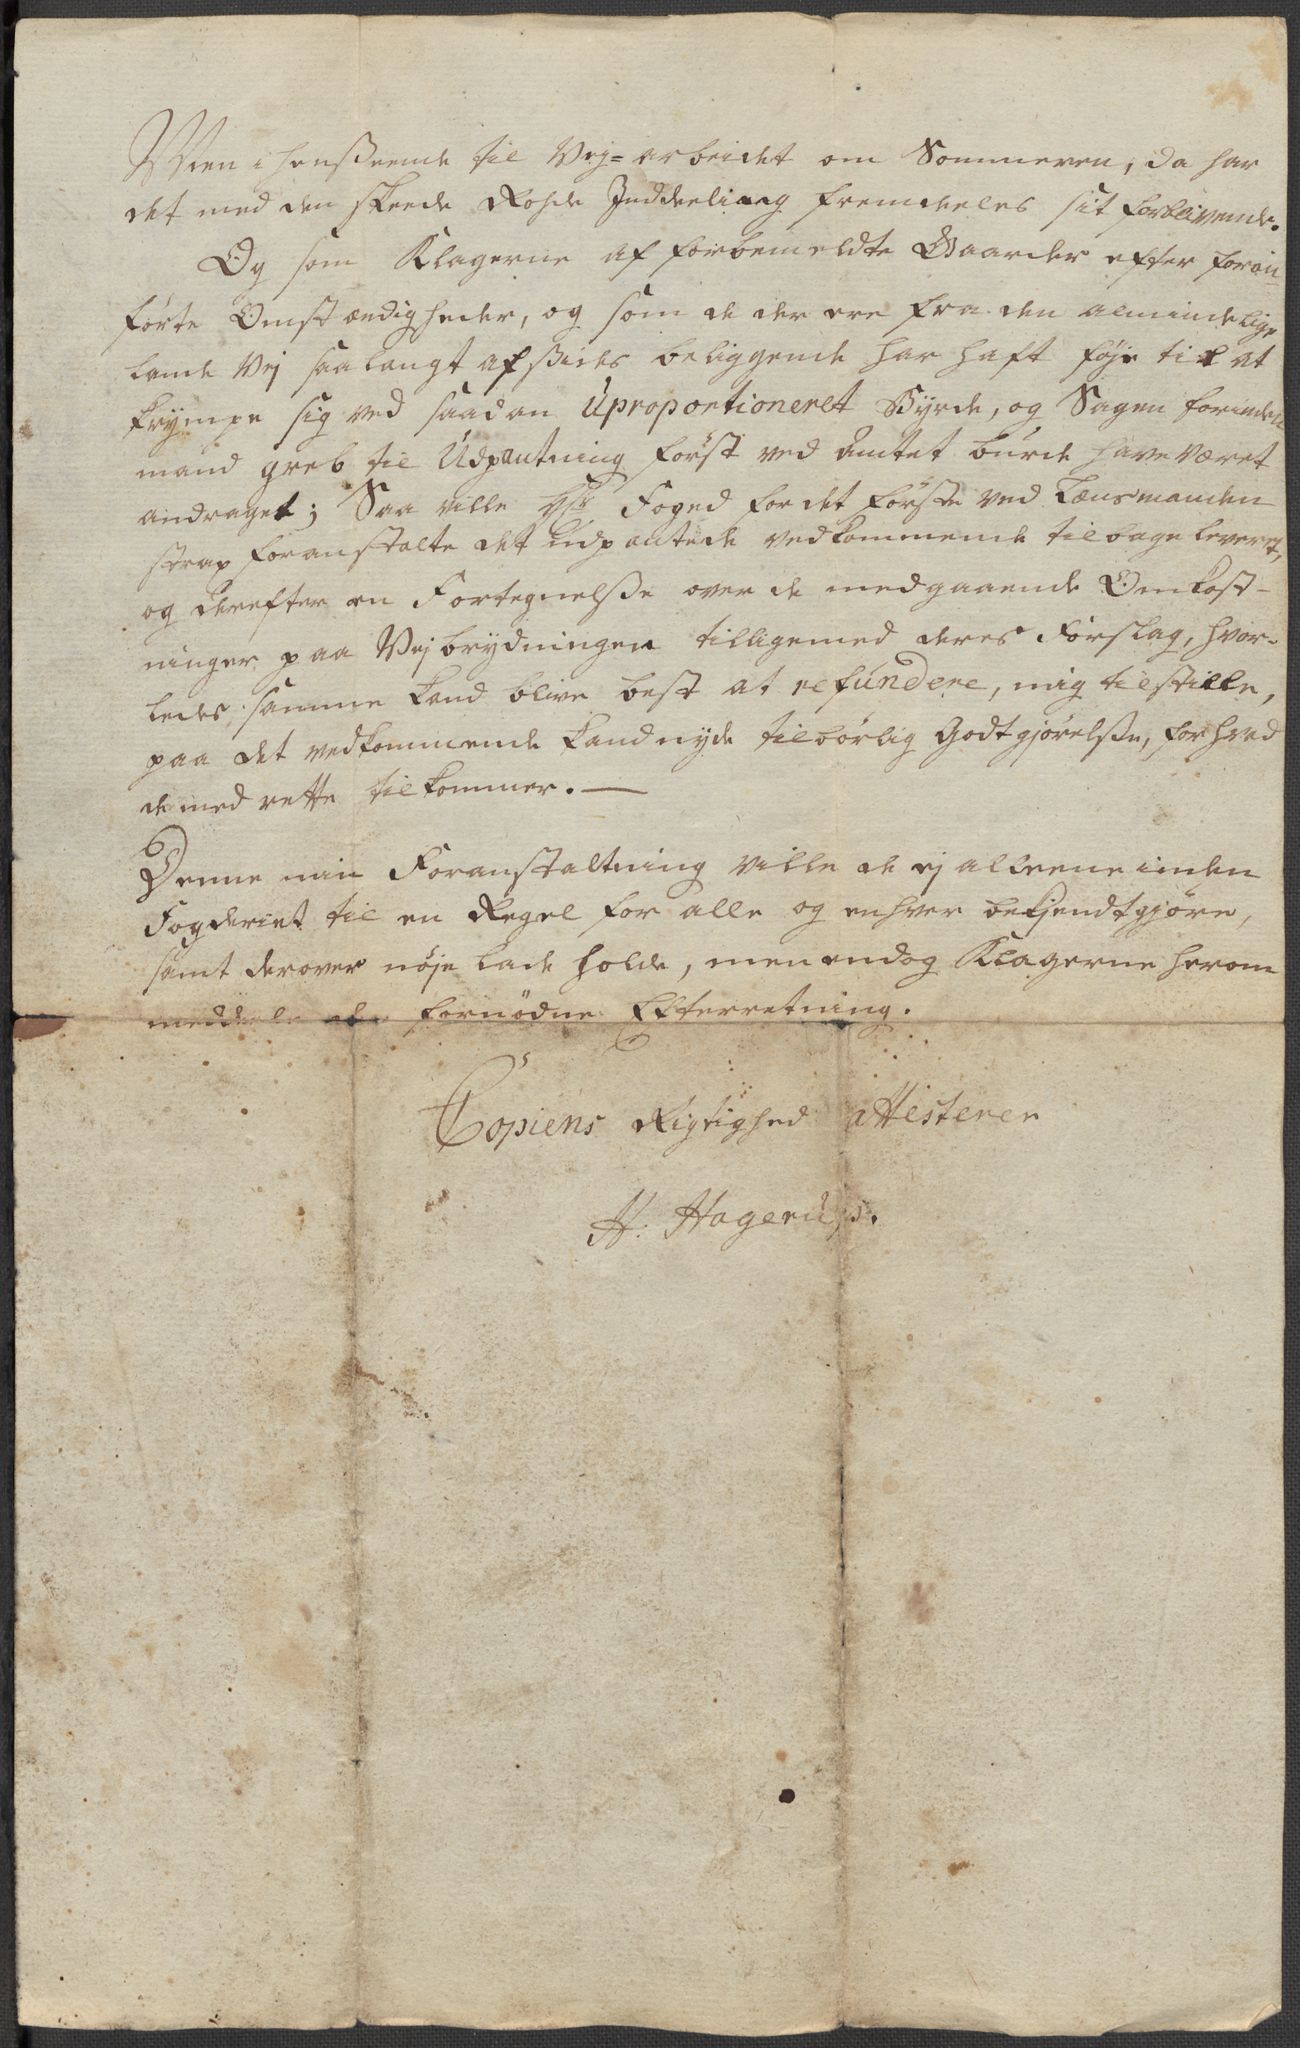 Men i henseende til Vej=arbeidet om Sommeren, da har
det med den skeede Rohde Inddeeling fremdeeles sit forblivende.
Og som Klagerne af forbemeldte Gaarder efter foran-
førte Omstændigheder, og som de der ere fra den almindelige
lande Vej saa langt afsides beliggende har haft føje til at
krympe sig ved saadan Uproportioneret Byrde, og Sagen forinden
mand greb til Udpantning først ved Amtet burde have været
andraget; Saa ville Hr Foged for det første ved Lænsmanden
strax foranstalte det udpantede vedkommende tilbage leveret,
og derefter en Fortegnelse over de medgaaende Omkost-
ninger paa Vejbrydningen tilligemed deres Forslag, hvor-
ledes samme kand blive best at refundere, mig tilstille,
paa det vedkommende kand nyde tilbørlig Godtgjørelse, for hvad
de med rette tilkommer. —
Denne min Foranstaltning ville de ej alleene inden
Fogderiet til en Regel for alle og enhver bekjendtgjøre,
samt derover nøje lade holde, men endog Klagerne herom
meddele de fornødne Efterretning.
Copiens Rigtighed attesterer
H. Hagerup.